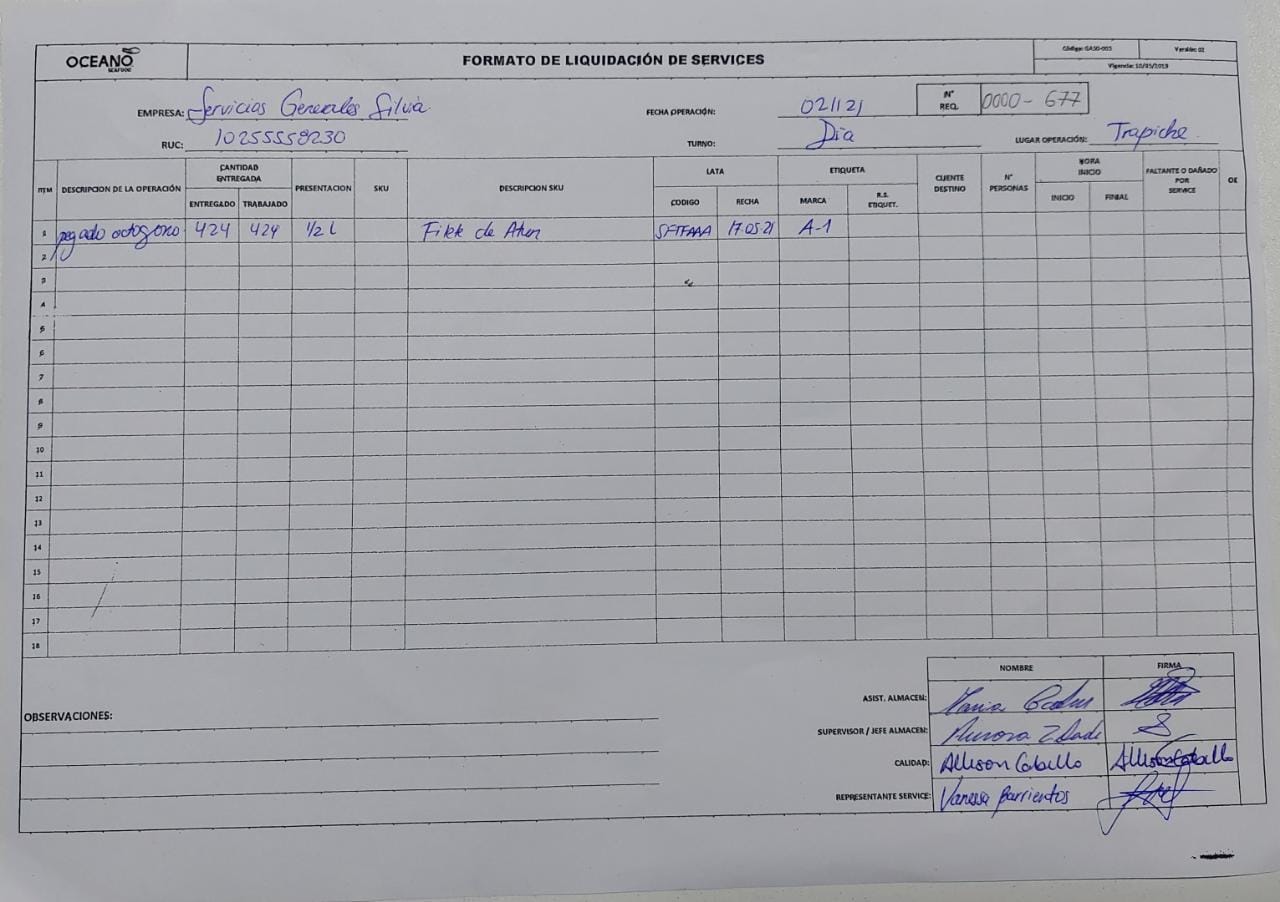 OCEANO
SEAFOOD
FORMATO DE LIQUIDACIÓN DE SERVICES
Código: GASO-003 Versión: 02
Vigencia: 10/05/2019
EMPRESA: Servicios Generales Silvia
FECHA OPERACIÓN: 02/12/
N° REQ. 0000-677
RUC: 10255558230
TURNO: Día
LUGAR OPERACIÓN: Trapiche
ITM DESCRIPCION DE LA OPERACIÓN CANTIDAD ENTREGADA PRESENTACION SKU DESCRIPCION SKU LATA ETIQUETA CLIENTE DESTINO N° PERSONAS HORA INICIO FALTANTE O DAÑADO POR SERVICE OK
ENTREGADO TRABAJADO CODIGO FECHA MARCA R.S. ETIQUET. INICIO FINIAL
1 pegado octogono 424 424 1/2 L de SFTFAAA 17-05-21 A-1
2
3
4
5
6
7
8
9
10
11
12
13
14
15
16
17
18
NOMBRE FIRMA
ASIST. ALMACEN: Maria
OBSERVACIONES:
SUPERVISOR / JEFE ALMACEN: Aurora
CALIDAD: Allison Cabello Allison Cabello
REPRESENTANTE SERVICE: Vanessa Barrientos